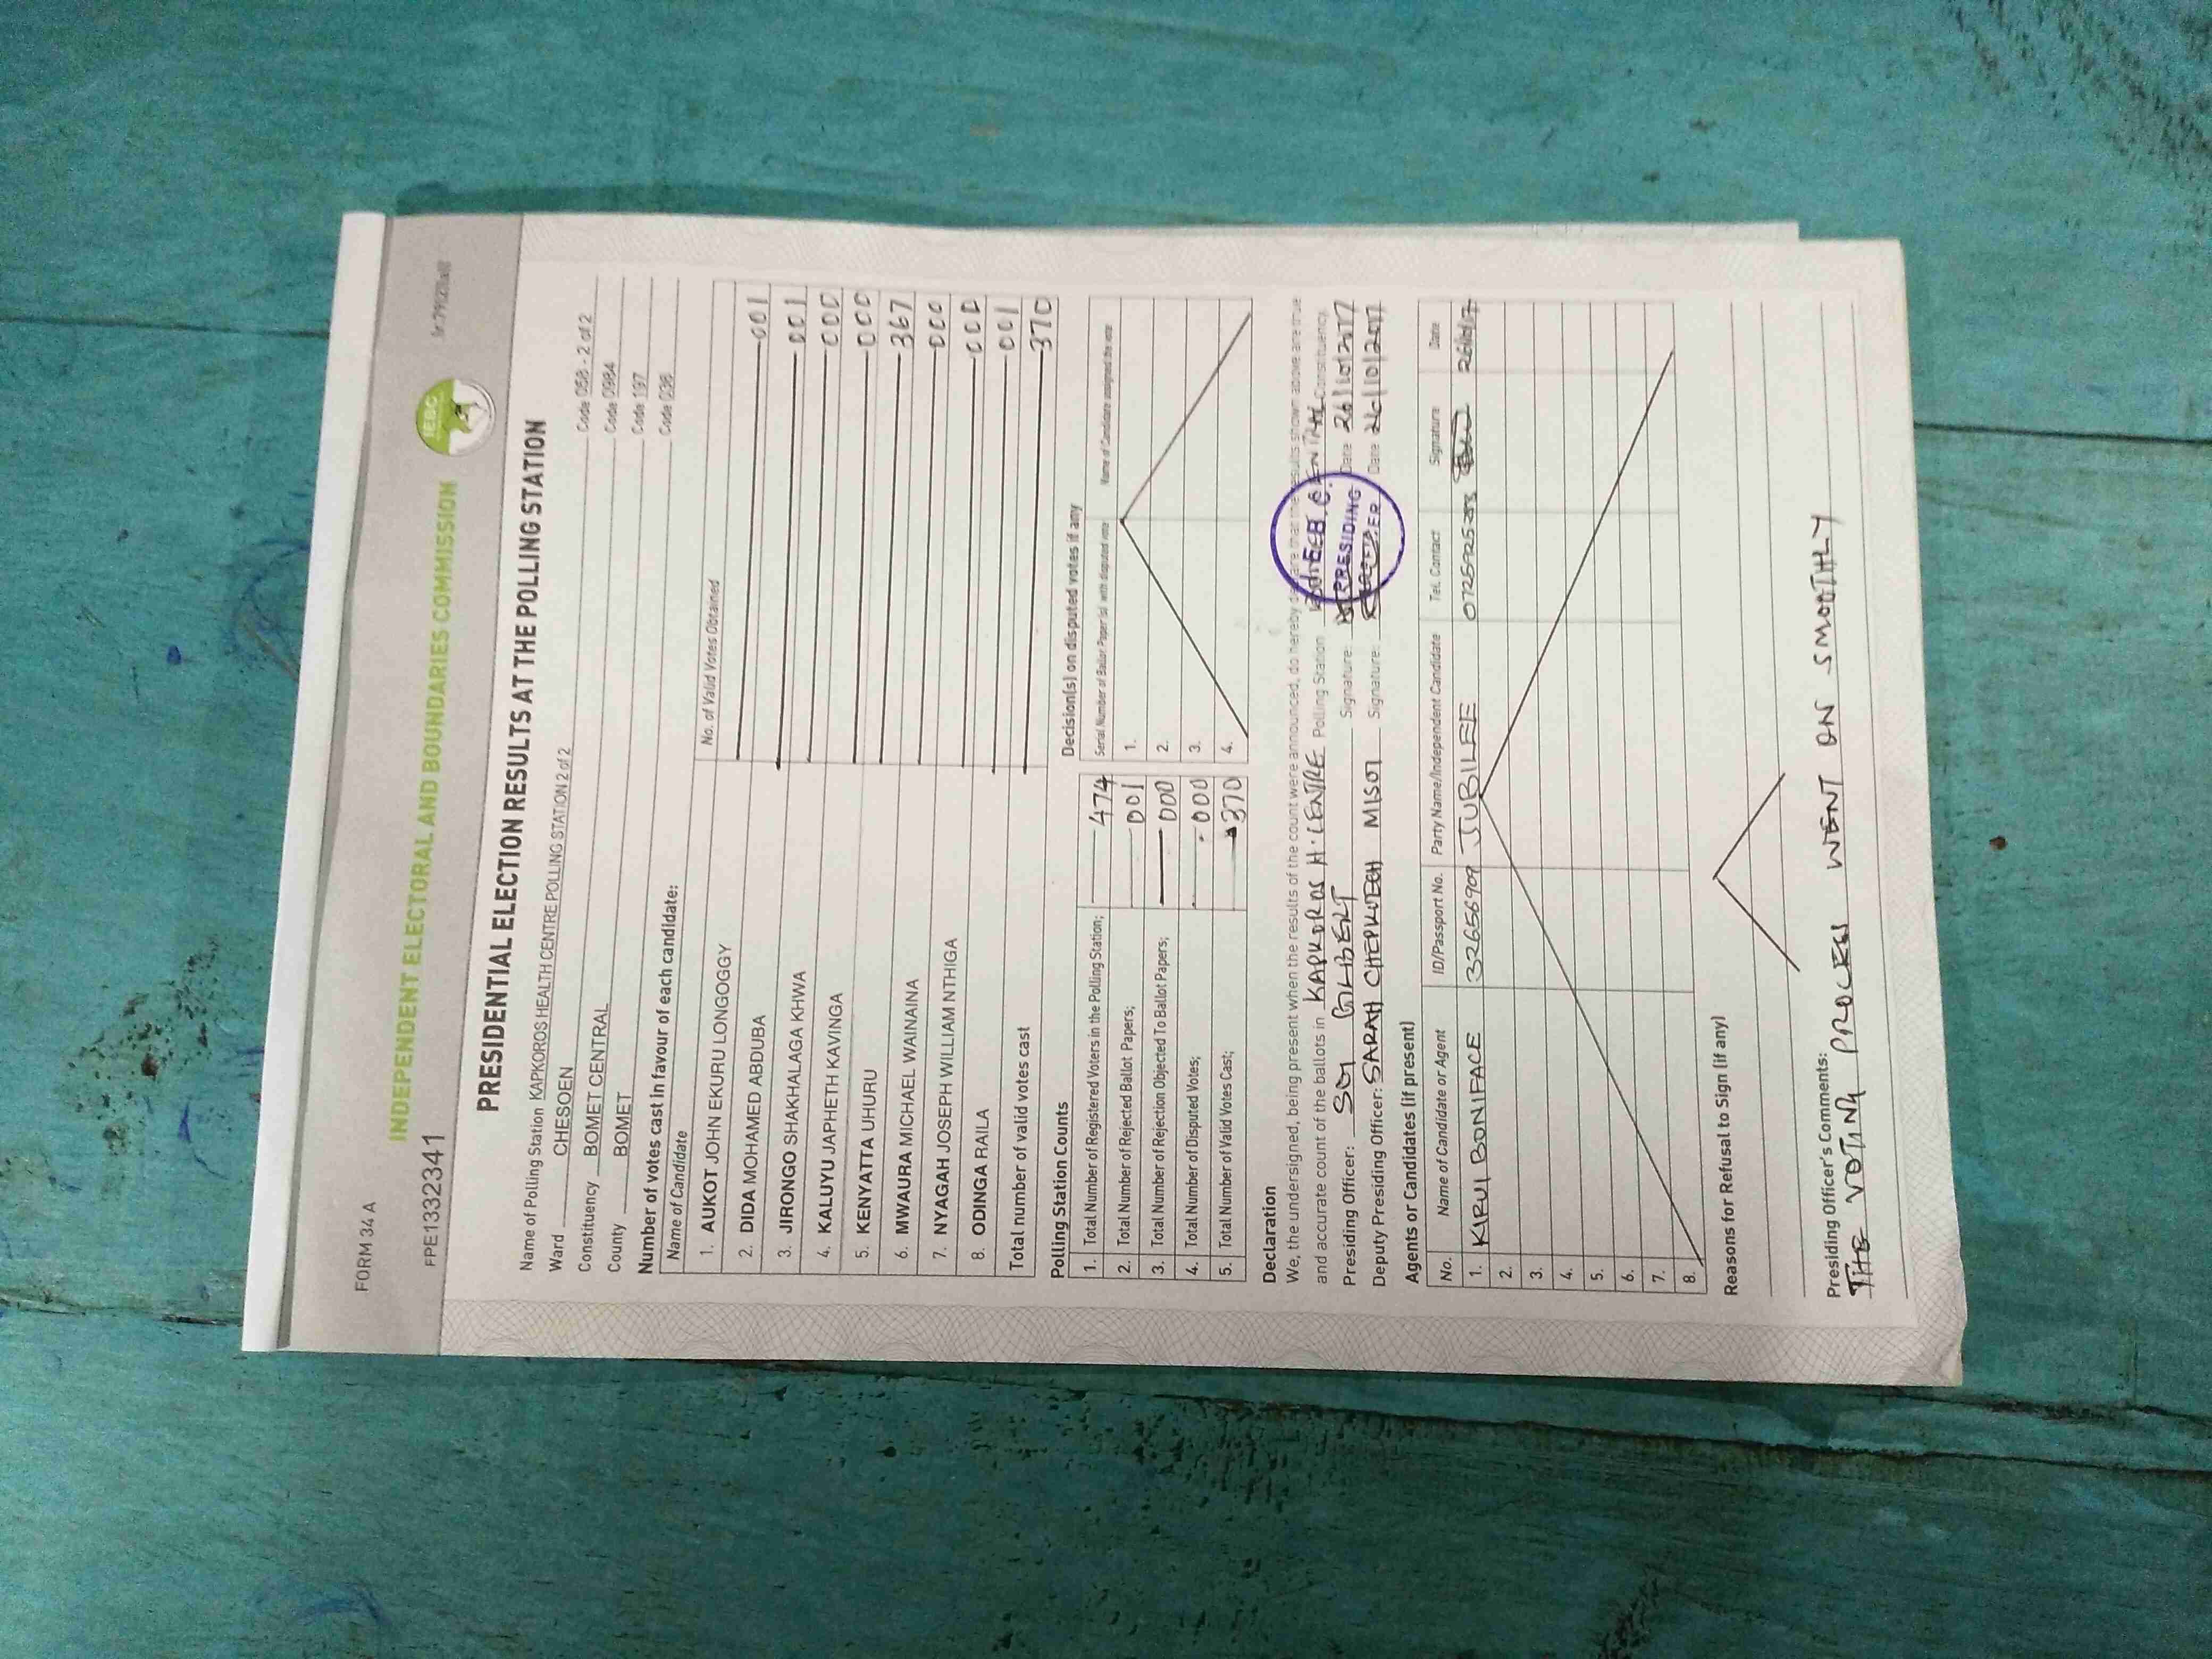 FORM 34 A
INDEPENDENT ELECTORAL AND BOUNDARIES COMMISSION
IEBC
FPE1332341
PRESIDENTIAL ELECTION RESULTS AT THE POLLING STATION
Name of Polling Station KAPKOROS HEALTH CENTRE POLLING STATION 2 of 2 Code 058 - 2 of 2
Ward CHESOEN Code 0984
Constituency BOMET CENTRAL Code 197
County BOMET Code 036
Number of votes cast in favour of each candidate:
Name of Candidate No. of Valid Votes Obtained
1. AUKOT JOHN EKURU LONGOGGY 001
2. DIDA MOHAMED ABDUBA 001
3. JIRONGO SHAKHALAGA KHWA 000
4. KALUYU JAPHETH KAVINGA 000
5. KENYATTA UHURU 367
6. MWAURA MICHAEL WAINAINA 000
7. NYAGAH JOSEPH WILLIAM NTHIGA 000
8. ODINGA RAILA 001
Total number of valid votes cast 370
Polling Station Counts
1. Total Number of Registered Voters in the Polling Station; 474
2. Total Number of Rejected Ballot Papers; 001
3. Total Number of Rejection Objected To Ballot Papers; 000
4. Total Number of Disputed Votes; 000
5. Total Number of Valid Votes Cast; 370
Decision(s) on disputed votes if any
Serial Number of Ballot Paper (s) with disputed vote Name of Candidate assigned the vote
1.
2.
3.
4.
Declaration
We, the undersigned, being present when the results of the count were announced, do hereby declare that the results shown above are true
and accurate count of the ballots in KAPKOROS H. CENTRE Polling Station CENTRAL Constituency.
Presiding Officer: GILBERT Signature: Date 26/10/2017
Deputy Presiding Officer: SARAH CHEPKOECH MISOI Signature: Date 26/10/2017
I.E.B.C.
PRESIDING
OFFICER
Agents or Candidates (if present)
No. Name of Candidate or Agent ID/Passport No. Party Name/Independent Candidate Tel. Contact Signature Date
1. KIRUI BONIFACE 32656909 JUBILEE 26/10/17
2.
3.
4.
5.
6.
7.
8.
Reasons for Refusal to Sign (if any)
Presiding Officer's Comments:
THE VOTING PROCESS WENT ON SMOOTHLY